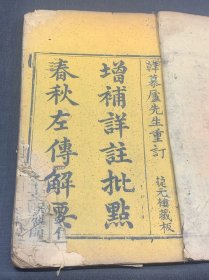 慕廬先生重訂
藏板
增補詳註批點
春秋左傳解要